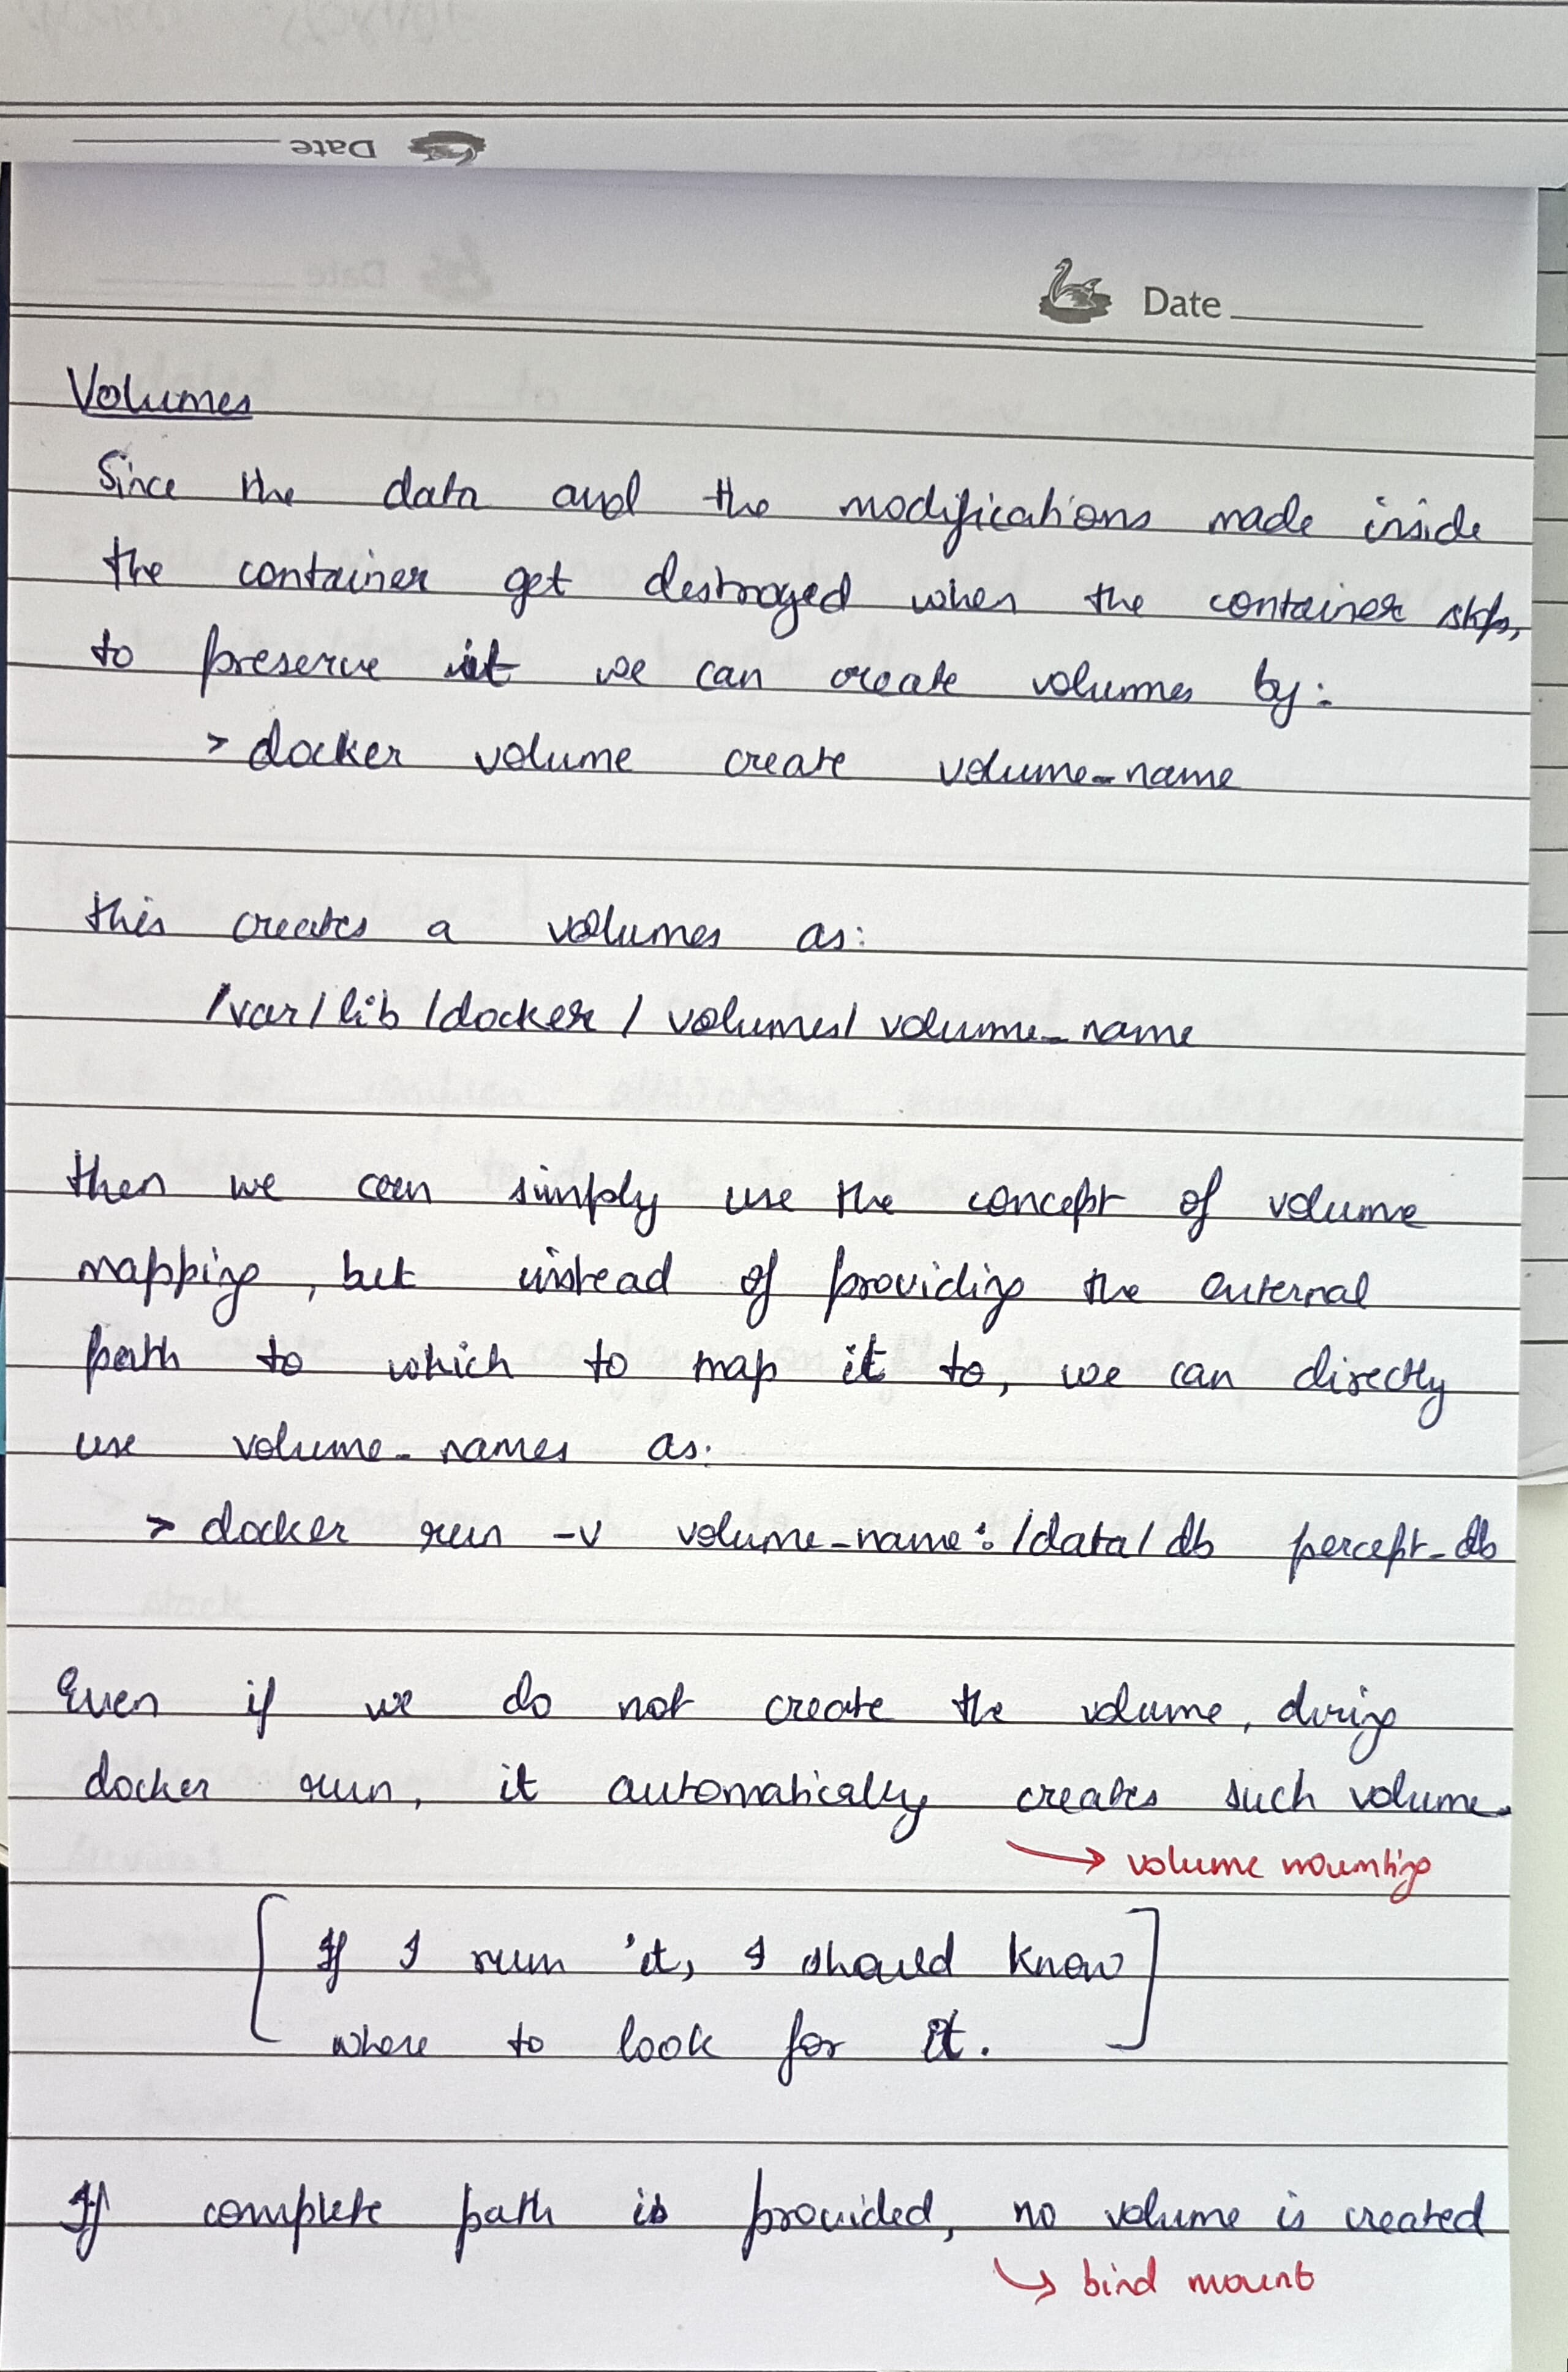 Date
Date
Volumes
Since the data and the modifications made inside
the container get destroyed when the container stops,
to preserve it we can create volumes by:
> docker volume create volume_name
this creates a volumes as:
/var/lib/docker/volumes/volume_name
then we can simply use the concept of volume
mapping, but instead of providing the external
path to which to map it to, we can directly
use volume_names as:
> docker run -v volume_name:/data/db percept_db
Even if we do not create the volume, during
docker run, it automatically creates such volume.
→ volume mounting
[If I run it, I should know
where to look for it.]
If complete path is provided, no volume is created
↳ bind mount